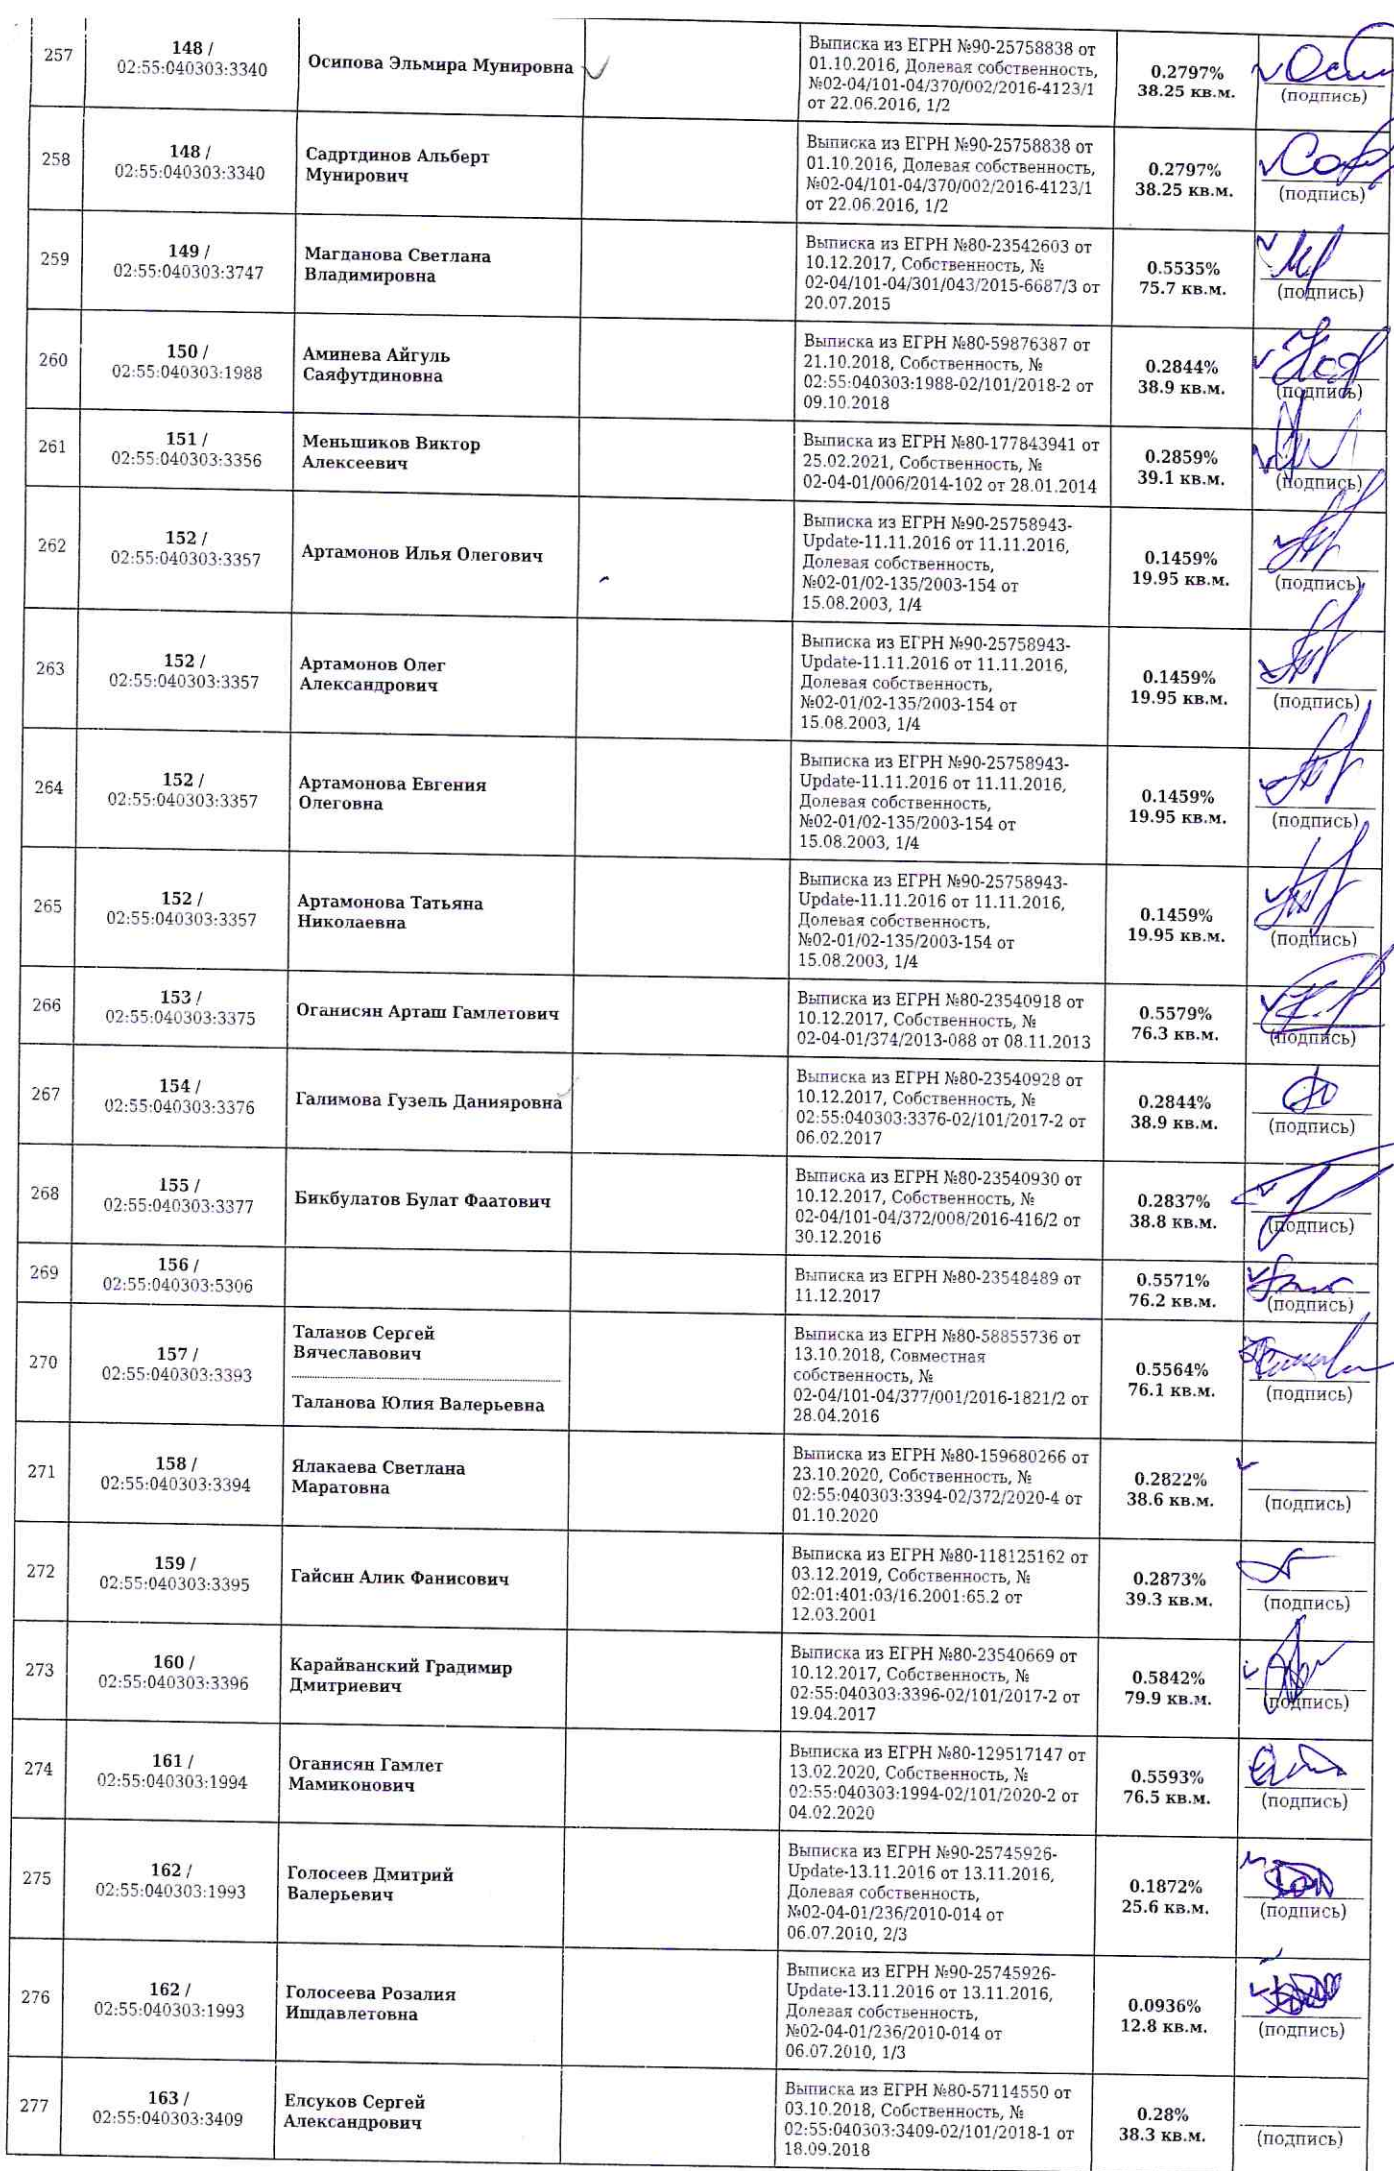 257
148 /
02:55:040303:3340
Осипова Эльмира Мунировна
Выписка из ЕГРН №90-25758838 от
01.10.2016, Долевая собственность,
№02-04/101-04/370/002/2016-4123/1
от 22.06.2016, 1/2
0.2797%
38.25 кв.м.
(подпись)
258
148 /
02:55:040303:3340
Садртдинов Альберт
Мунирович
Выписка из ЕГРН №90-25758838 от
01.10.2016, Долевая собственность,
№02-04/101-04/370/002/2016-4123/1
от 22.06.2016, 1/2
0.2797%
38.25 кв.м.
(подпись)
259
149 /
02:55:040303:3747
Магданова Светлана
Владимировна
Выписка из ЕГРН №80-23542603 от
10.12.2017, Собственность, №
02-04/101-04/301/043/2015-6687/3 от
20.07.2015
0.5535%
75.7 кв.м.
(подпись)
260
150 /
02:55:040303:1988
Аминева Айгуль
Саяфутдиновна
Выписка из ЕГРН №80-59876387 от
21.10.2018, Собственность, №
02:55:040303:1988-02/101/2018-2 от
09.10.2018
0.2844%
38.9 кв.м.
(подпись)
261
151 /
02:55:040303:3356
Меньшиков Виктор
Алексеевич
Выписка из ЕГРН №80-177843941 от
25.02.2021, Собственность, №
02-04-01/006/2014-102 от 28.01.2014
0.2859%
39.1 кв.м.
(подпись)
262
152 /
02:55:040303:3357
Артамонов Илья Олегович
Выписка из ЕГРН №90-25758943-
Update-11.11.2016 от 11.11.2016,
Долевая собственность,
№02-01/02-135/2003-154 от
15.08.2003, 1/4
0.1459%
19.95 кв.м.
(подпись)
263
152 /
02:55:040303:3357
Артамонов Олег
Александрович
Выписка из ЕГРН №90-25758943-
Update-11.11.2016 от 11.11.2016,
Долевая собственность,
№02-01/02-135/2003-154 от
15.08.2003, 1/4
0.1459%
19.95 кв.м.
(подпись)
264
152 /
02:55:040303:3357
Артамонова Евгения
Олеговна
Выписка из ЕГРН №90-25758943-
Update-11.11.2016 от 11.11.2016,
Долевая собственность,
№02-01/02-135/2003-154 от
15.08.2003, 1/4
0.1459%
19.95 кв.м.
(подпись)
265
152 /
02:55:040303:3357
Артамонова Татьяна
Николаевна
Выписка из ЕГРН №90-25758943-
Update-11.11.2016 от 11.11.2016,
Долевая собственность,
№02-01/02-135/2003-154 от
15.08.2003, 1/4
0.1459%
19.95 кв.м.
(подпись)
266
153 /
02:55:040303:3375
Оганисян Арташ Гамлетович
Выписка из ЕГРН №80-23540918 от
10.12.2017, Собственность, №
02-04-01/374/2013-088 от 08.11.2013
0.5579%
76.3 кв.м.
(подпись)
267
154 /
02:55:040303:3376
Галимова Гузель Данияровна
Выписка из ЕГРН №80-23540928 от
10.12.2017, Собственность, №
02:55:040303:3376-02/101/2017-2 от
06.02.2017
0.2844%
38.9 кв.м.
(подпись)
268
155 /
02:55:040303:3377
Бикбулатов Булат Фаатович
Выписка из ЕГРН №80-23540930 от
10.12.2017, Собственность, №
02-04/101-04/372/008/2016-416/2 от
30.12.2016
0.2837%
38.8 кв.м.
(подпись)
269
156 /
02:55:040303:5306
Выписка из ЕГРН №80-23548489 от
11.12.2017
0.5571%
76.2 кв.м.
(подпись)
270
157 /
02:55:040303:3393
Таланов Сергей
Вячеславович
Таланова Юлия Валерьевна
Выписка из ЕГРН №80-58855736 от
13.10.2018, Совместная
собственность, №
02-04/101-04/377/001/2016-1821/2 от
28.04.2016
0.5564%
76.1 кв.м.
(подпись)
271
158 /
02:55:040303:3394
Ялакаева Светлана
Маратовна
Выписка из ЕГРН №80-159680266 от
23.10.2020, Собственность, №
02:55:040303:3394-02/372/2020-4 от
01.10.2020
0.2822%
38.6 кв.м.
(подпись)
272
159 /
02:55:040303:3395
Гайсин Алик Фанисович
Выписка из ЕГРН №80-118125162 от
03.12.2019, Собственность, №
02:01:401:03/16.2001:65.2 от
12.03.2001
0.2873%
39.3 кв.м.
(подпись)
273
160 /
02:55:040303:3396
Карайванский Градимир
Дмитриевич
Выписка из ЕГРН №80-23540669 от
10.12.2017, Собственность, №
02:55:040303:3396-02/101/2017-2 от
19.04.2017
0.5842%
79.9 кв.м.
(подпись)
274
161 /
02:55:040303:1994
Оганисян Гамлет
Мамиконович
Выписка из ЕГРН №80-129517147 от
13.02.2020, Собственность, №
02:55:040303:1994-02/101/2020-2 от
04.02.2020
0.5593%
76.5 кв.м.
(подпись)
275
162 /
02:55:040303:1993
Голосеев Дмитрий
Валерьевич
Выписка из ЕГРН №90-25745926-
Update-13.11.2016 от 13.11.2016,
Долевая собственность,
№02-04-01/236/2010-014 от
06.07.2010, 2/3
0.1872%
25.6 кв.м.
(подпись)
276
162 /
02:55:040303:1993
Голосеева Розалия
Ишдавлетовна
Выписка из ЕГРН №90-25745926-
Update-13.11.2016 от 13.11.2016,
Долевая собственность,
№02-04-01/236/2010-014 от
06.07.2010, 1/3
0.0936%
12.8 кв.м.
(подпись)
277
163 /
02:55:040303:3409
Елсуков Сергей
Александрович
Выписка из ЕГРН №80-57114550 от
03.10.2018, Собственность, №
02:55:040303:3409-02/101/2018-1 от
18.09.2018
0.28%
38.3 кв.м.
(подпись)